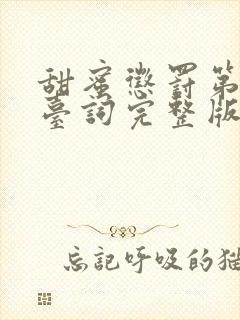 甜蜜懲罰第
臺詞完整版
忘記呼吸的猫